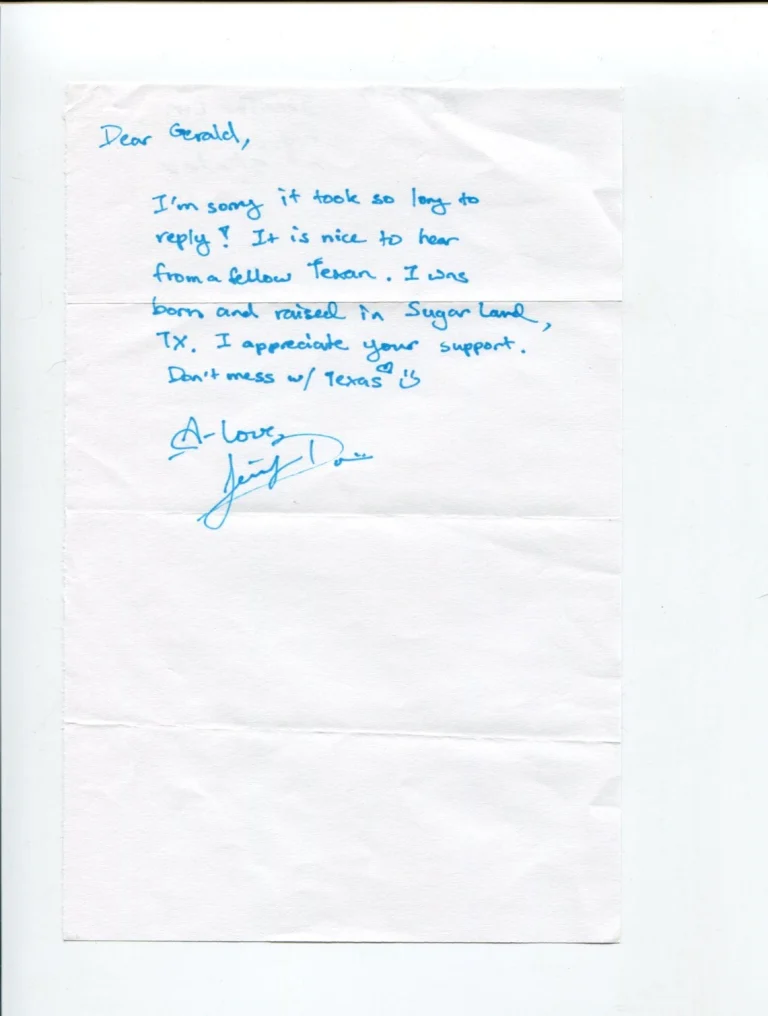 Dear Gerald,
I'm sorry it took so long to
reply! It is nice to hear
from a fellow Texan. I was
born and raised in Sugar Land,
TX. I appreciate your support.
Don't mess w/ Texas
A-Love,